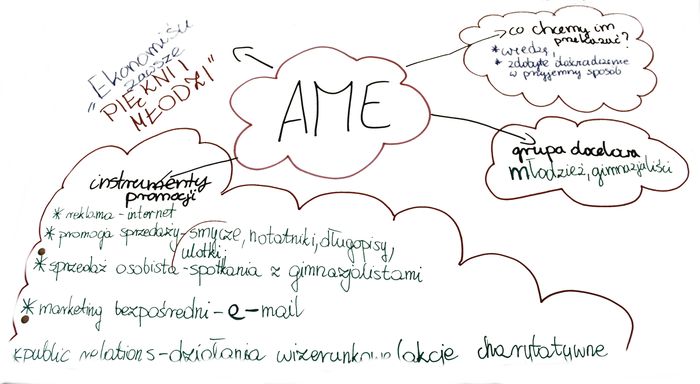 Ekonomiści
zawsze
"PIĘKNI I
MŁODZI"
AME
co chcemy im
przekazać?
* wiedzę,
* zdobyte doświadczenie
w przyjemny sposób
grupa docelowa
młodzież, gimnazjaliści
instrumenty
promocji
* reklama - internet
* promocja sprzedaży - smycze, notatniki, długopisy,
ulotki
* sprzedaż osobista - spotkania z gimnazjalistami
* marketing bezpośredni - e-mail
* public relations - działania wizerunkowe/akcje charytatywne